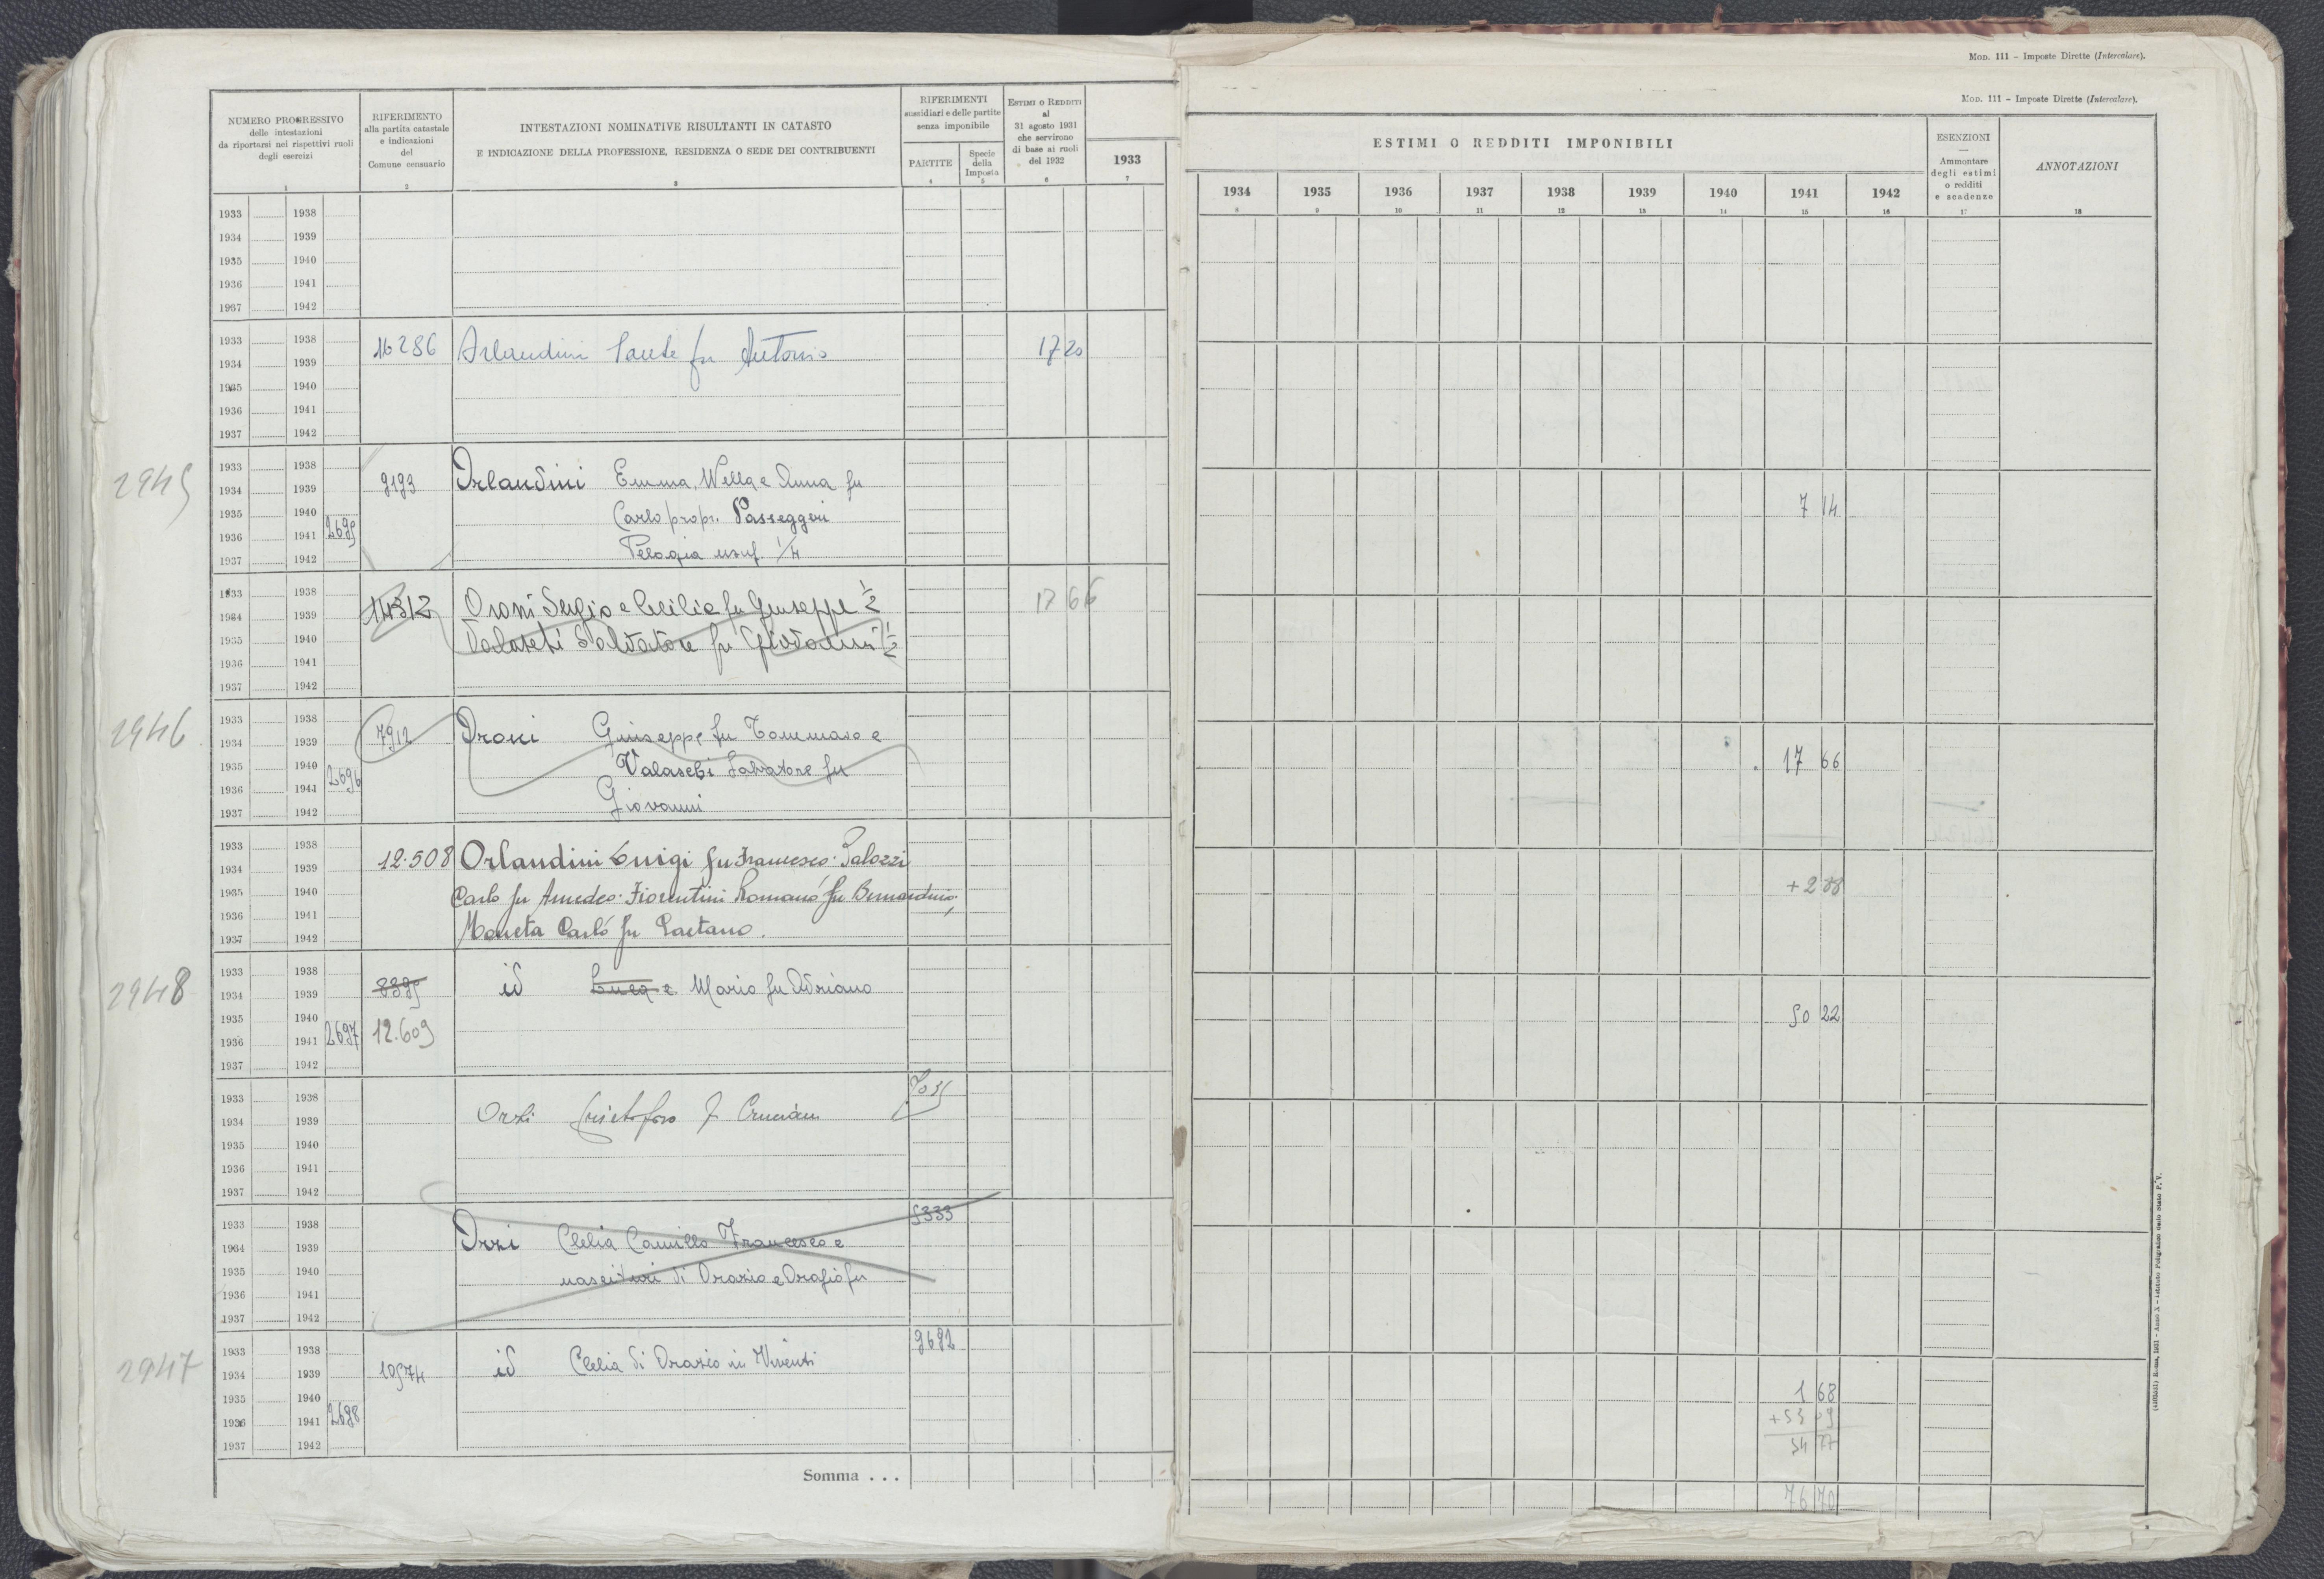 Mod. 111 – Imposte Dirette (Intercalare).
Mod. 111 – Imposte Dirette (Intercalare).
NUMERO PROGRESSIVO
delle intestazioni
da riportarsi nei rispettivi ruoli
degli esercizi
1
RIFERIMENTO
alla partita catastale
e indicazioni
del
Comune censuario
2
INTESTAZIONI NOMINATIVE RISULTANTI IN CATASTO
E INDICAZIONE DELLA PROFESSIONE, RESIDENZA O SEDE DEI CONTRIBUENTI
3
RIFERIMENTI
sussidiari e delle partite
senza imponibile
PARTITE
4
Specie
della
Imposta
5
Estimi o Redditi
al
31 agosto 1931
che servirono
di base ai ruoli
del 1932
6
1933
7
ESTIMI O REDDITI IMPONIBILI
1934 1935 1936 1937 1938 1939 1940 1941 1942
8 9 10 11 12 13 14 15 16
ESENZIONI
—
Ammontare
degli estimi
o redditi
e scadenze
17
ANNOTAZIONI
18
1933 1938
1934 1939
1935 1940
1936 1941
1937 1942
1933 1938
16286 Orlandini Sante fu Antonio 17 20
1934 1939
1935 1940
1936 1941
1937 1942
2945
1933 1938
9193 Orlandini Emma, Wella e Anna fu
1934 1939
Carlo propr. Passeggeri 7 14
1935 1940
1936 1941 2695
Pelagia usuf. 1/4
1937 1942
1933 1938
14312 Oroni Sergio e Cecilia fu Giuseppe 1/2 17 66
1934 1939
Valaschi Salvatore fu Giovanni 1/2
1935 1940
1936 1941
1937 1942
2946
1933 1938
7912 Oroni Giuseppe fu Tommaso e
1934 1939
Valaschi Salvatore fu 17 66
1935 1940
1936 1941 2696
Giovanni
1937 1942
1933 1938
12.508 Orlandini Luigi fu Francesco. Palozzi
1934 1939
Carlo fu Amedeo. Fiorentini Romano fu Bernardino,
1935 1940
1936 1941
Moneta Carlo fu Gaetano.
1937 1942
2948
1933 1938
8395 id Luca e Mario fu Adriano
1934 1939
50 22
1935 1940
1936 1941 2697 12.609
1937 1942
1933 1938
Orzi Cristoforo
1934 1939
1935 1940
1936 1941
1937 1942
5333
1933 1938
Orzi Clelia Camillo Francesco e
1934 1939
nascituri di Orazio e Orazio fu
1935 1940
1936 1941
1937 1942
2947
9692
1933 1938
10574 id Clelia di Orazio in Viventi
1934 1939
1 68
1935 1940
1936 1941 2698
+53 09
54 77
1937 1942
Somma . . .
76 70